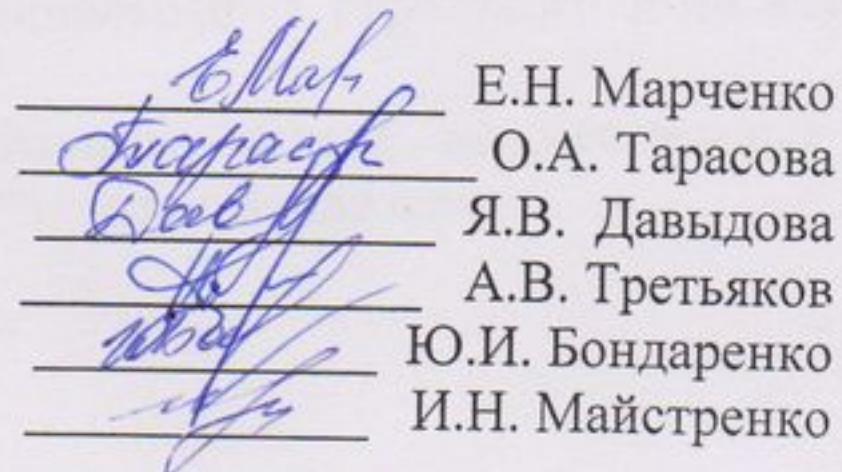 Е.Н. Марченко
О.А. Тарасова
Я.В. Давыдова
А.В. Третьяков
Ю.И. Бондаренко
И.Н. Майстренко